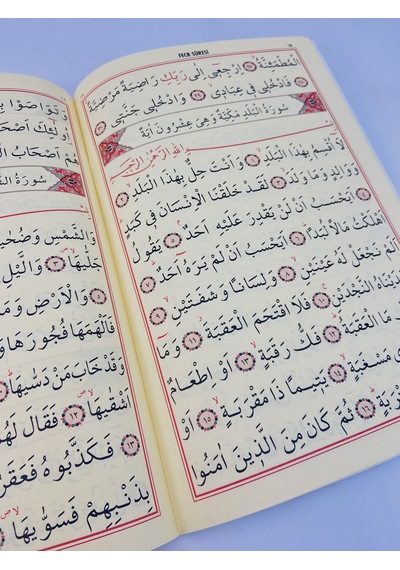 FECR SÛRESİ
الْمُطْمَئِنَّةُ ﴿٢٧﴾ اِرْجِعٖٓي اِلٰى رَبِّكِ رَاضِيَةً مَرْضِيَّةً
﴿٢٨﴾ فَادْخُلٖي فٖي عِبَادٖي ﴿٢٩﴾ وَادْخُلٖي جَنَّتٖي ﴿٣٠﴾
سُورَةُ الْبَلَدِ مَكِّيَّةٌ وَهِيَ عِشْرُونَ اٰيَةً
بِسْمِ اللّٰهِ الرَّحْمٰنِ الرَّحٖيمِ
لَٓا اُقْسِمُ بِهٰذَا الْبَلَدِ ﴿١﴾ وَاَنْتَ حِلٌّ بِهٰذَا الْبَلَدِ ﴿٢﴾
وَوَالِدٍ وَمَا وَلَدَ ﴿٣﴾ لَقَدْ خَلَقْنَا الْاِنْسَانَ فٖي كَبَدٍ ﴿٤﴾
اَيَحْسَبُ اَنْ لَنْ يَقْدِرَ عَلَيْهِ اَحَدٌ ﴿٥﴾ يَقُولُ
اَهْلَكْتُ مَالًا لُبَدًا ﴿٦﴾ اَيَحْسَبُ اَنْ لَمْ يَرَهُٓ اَحَدٌ ﴿٧﴾
اَلَمْ نَجْعَلْ لَهُ عَيْنَيْنِ ﴿٨﴾ وَلِسَانًا وَشَفَتَيْنِ ﴿٩﴾
وَهَدَيْنَاهُ النَّجْدَيْنِ ﴿١٠﴾ فَلَا اقْتَحَمَ الْعَقَبَةَ ﴿١١﴾ وَمَٓا
مَا الْعَقَبَةُ ﴿١٢﴾ فَكُّ رَقَبَةٍ ﴿١٣﴾ اَوْ اِطْعَامٌ
ي مَسْغَبَةٍ ﴿١٤﴾ يَتٖيمًا ذَا مَقْرَبَةٍ ﴿١٥﴾ اَوْ
رَبَةٍ ﴿١٦﴾ ثُمَّ كَانَ مِنَ الَّذٖينَ اٰمَنُوا
وَتَوَاصَوْا
اُولٰٓئِكَ اَصْحَا
هُمْ اَصْحَابُ
سُورَةُ
وَالشَّمْسِ وَضُحٰيهَا
جَلّٰيهَا ﴿٣﴾ وَالَّيْلِ
﴿٥﴾ وَالْاَرْضِ وَمَا
فَاَلْهَمَهَا فُجُورَهَا وَ
وَقَدْ خَابَ مَنْ دَسّٰيهَا
اَشْقٰيهَا ﴿١٢﴾ فَقَالَ لَهُمْ
﴿١٣﴾ فَكَذَّبُوهُ فَعَقَرُ
بِذَنْبِهِمْ فَسَوّٰيهَا